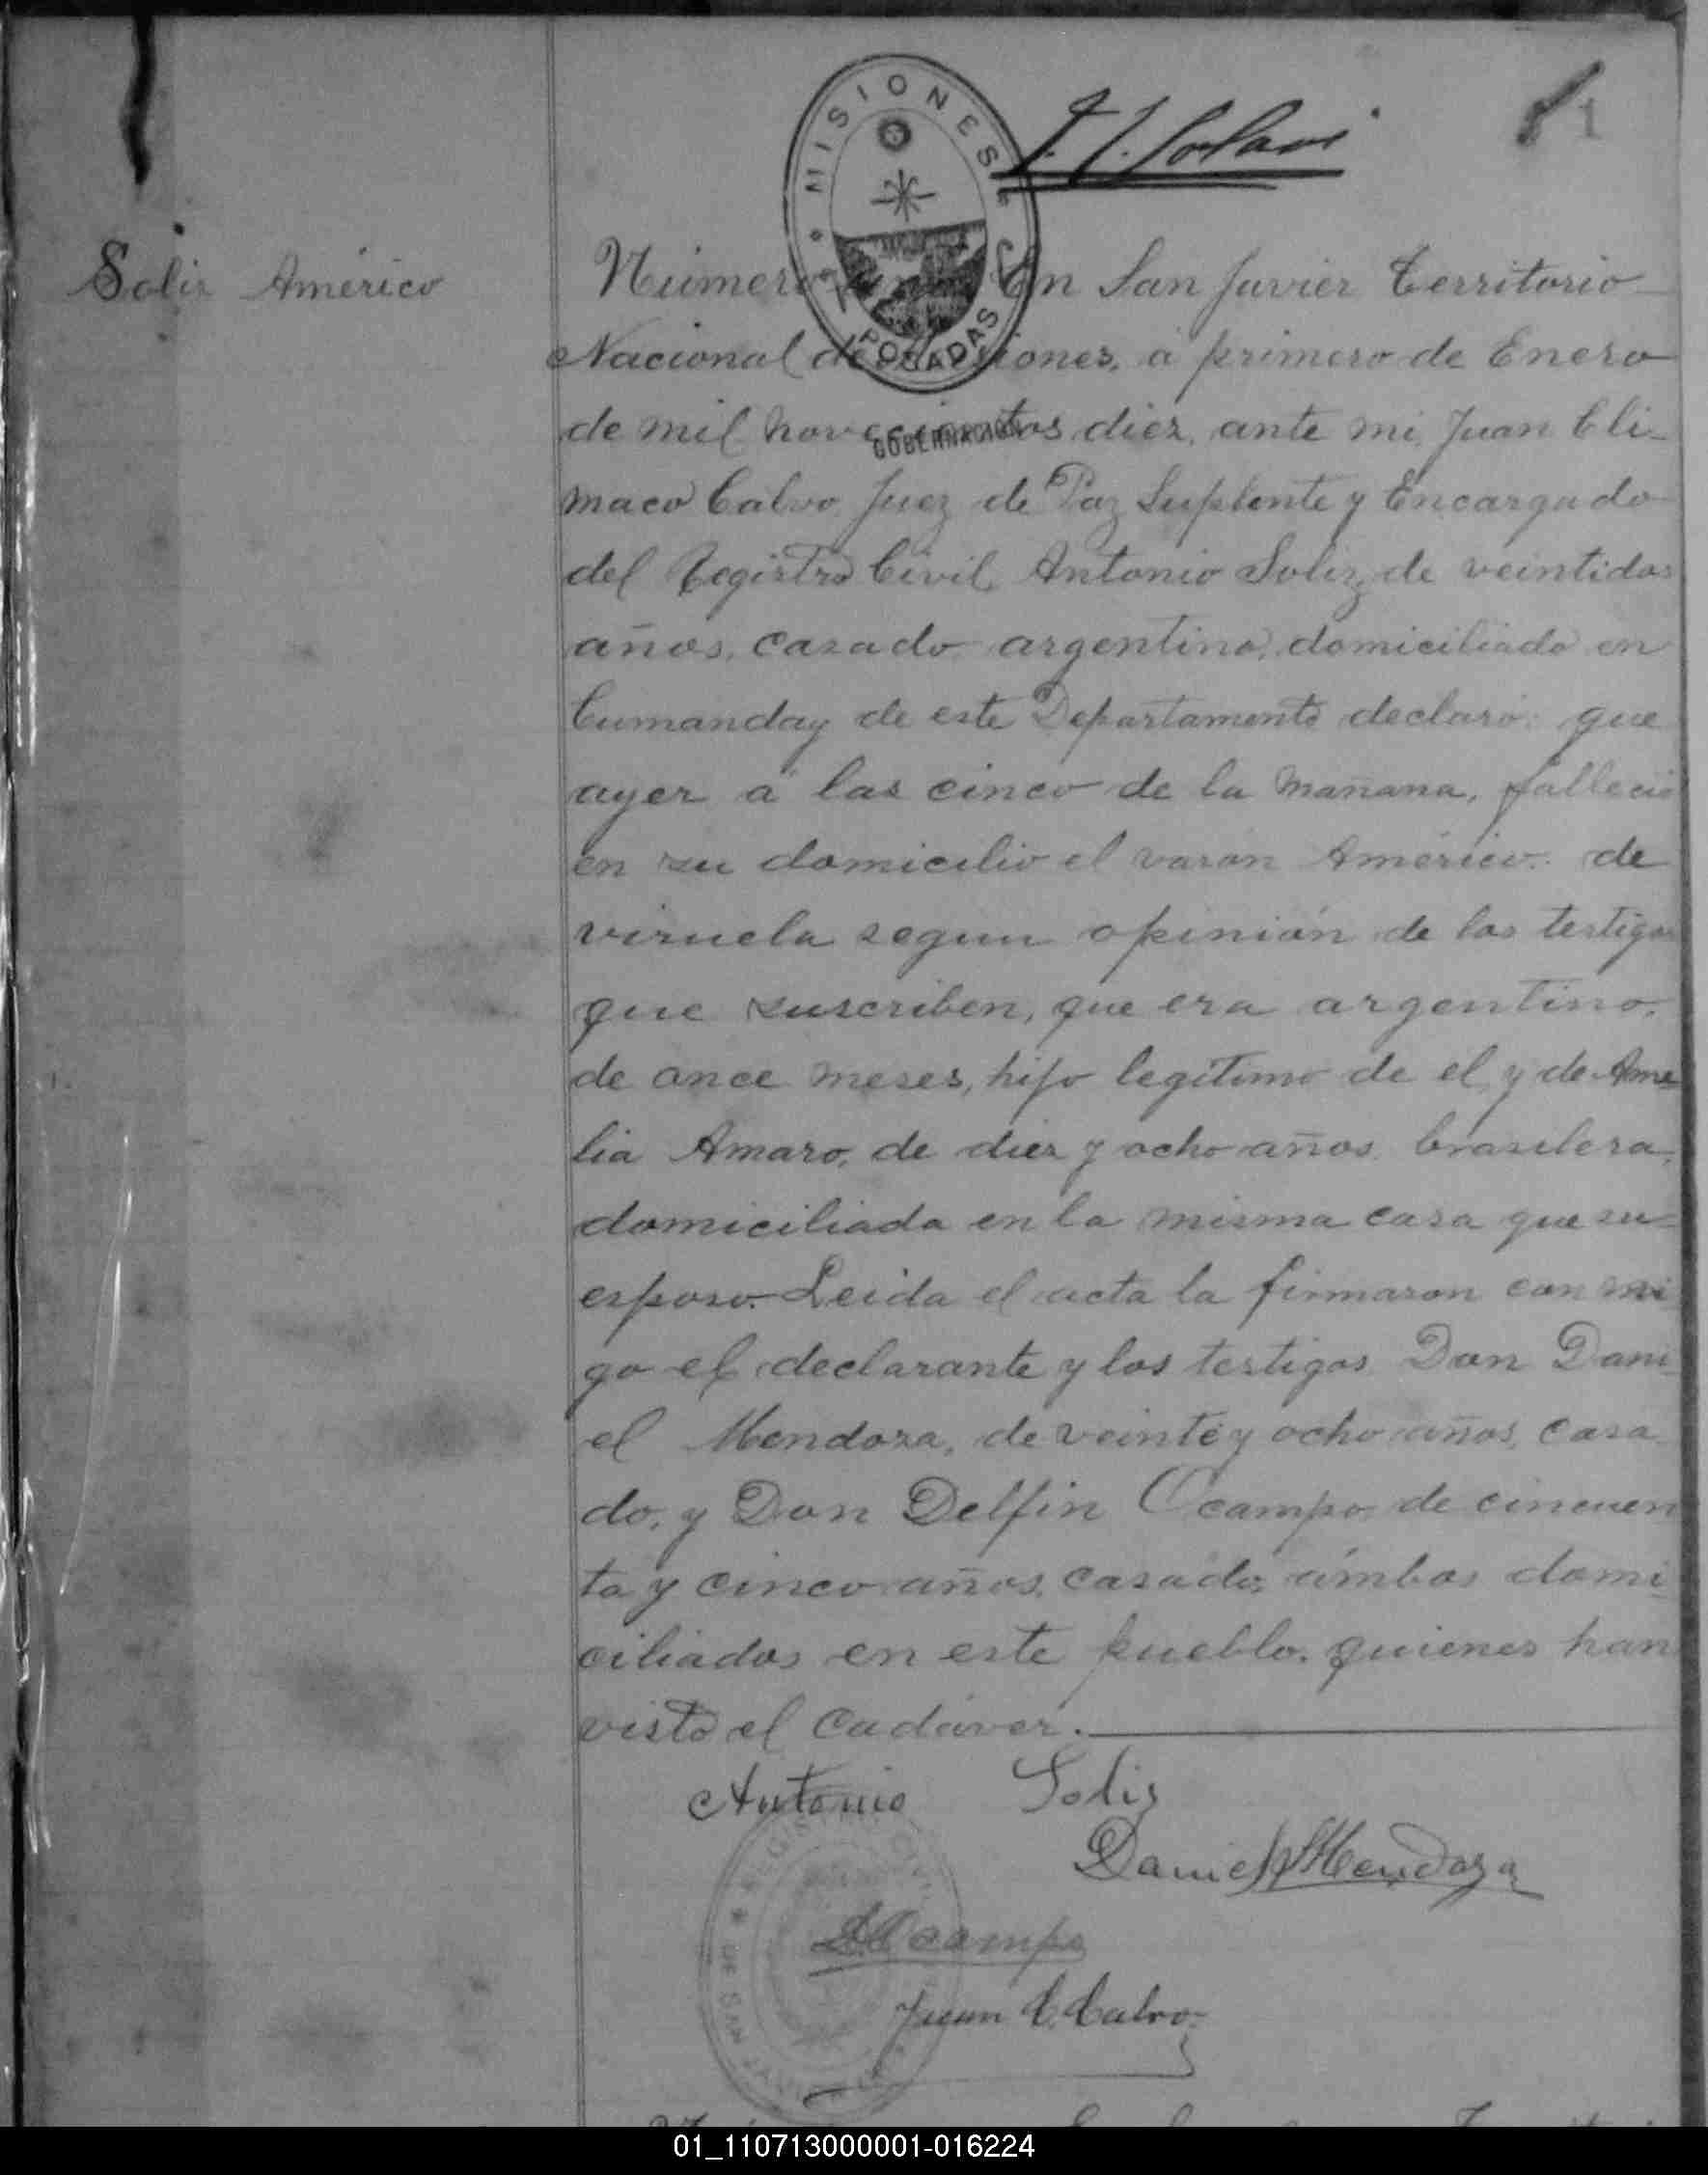 MISIONES
POSADAS
GOBERNACION
1
Solis Américo
Número uno En San Javier Territorio
Nacional de Misiones, á primero de Enero
de mil novecientos diez, ante mi, Juan Cli-
maco Calvo Juez de Paz Suplente y Encargado
del Registro Civil, Antonio Solis, de veintidos
años, casado argentino, domiciliado en
Cumanday de este Departamento declaró: que
ayer á las cinco de la mañana, falleció
en su domicilio el varon Américo. de
viruela segun opinión de los testigos
que suscriben, que era argentino,
de once meses, hijo legítimo de el y de Ame
lia Amaro, de diez y ocho años brasilera,
domiciliada en la misma casa que su
esposo. Leida el acta la firmaron con mi
go el declarante y los testigos Don Dani
el Mendoza, de veinte y ocho años, casa
do, y Don Delfin Ocampo, de cincuen
ta y cinco años, casado, ámbos domi
ciliados en este pueblo, quienes han
visto el cadáver.
Antonio Solis
Daniel Mendoza
D Ocampo
Juan C. Calvo
REGISTRO CIVIL
DE SAN JAVIER
01_110713000001-016224